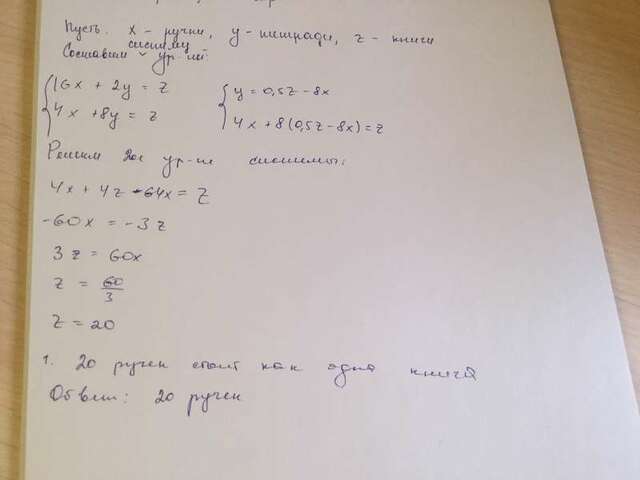 Пусть x - ручки, y - тетради, z - книги
Составим систему ур-ий
16x + 2y = z
4x + 8y = z
y = 0,5z - 8x
4x + 8(0,5z - 8x) = z
Решим 2ое ур-ие системы:
4x + 4z - 64x = z
-60x = -3z
3z = 60x
z = 60/3
z = 20
1. 20 ручек стоит как одна книга
Ответ: 20 ручек